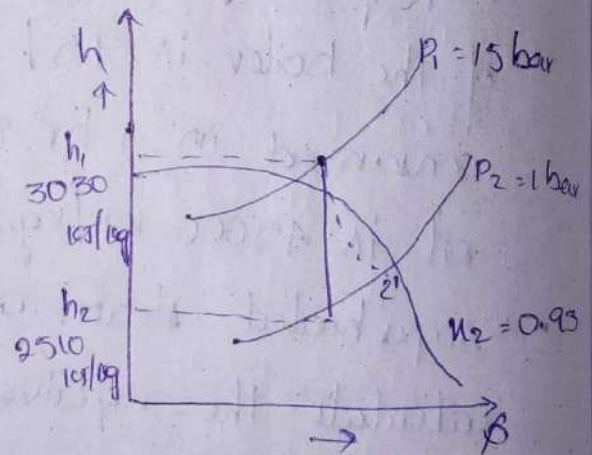 h
P₁ = 15 bar
↑
h₁
3030
kJ/kg
P₂ = 1 bar
h₂
2510
kJ/kg
2'
x₂ = 0.93
→
ϕ